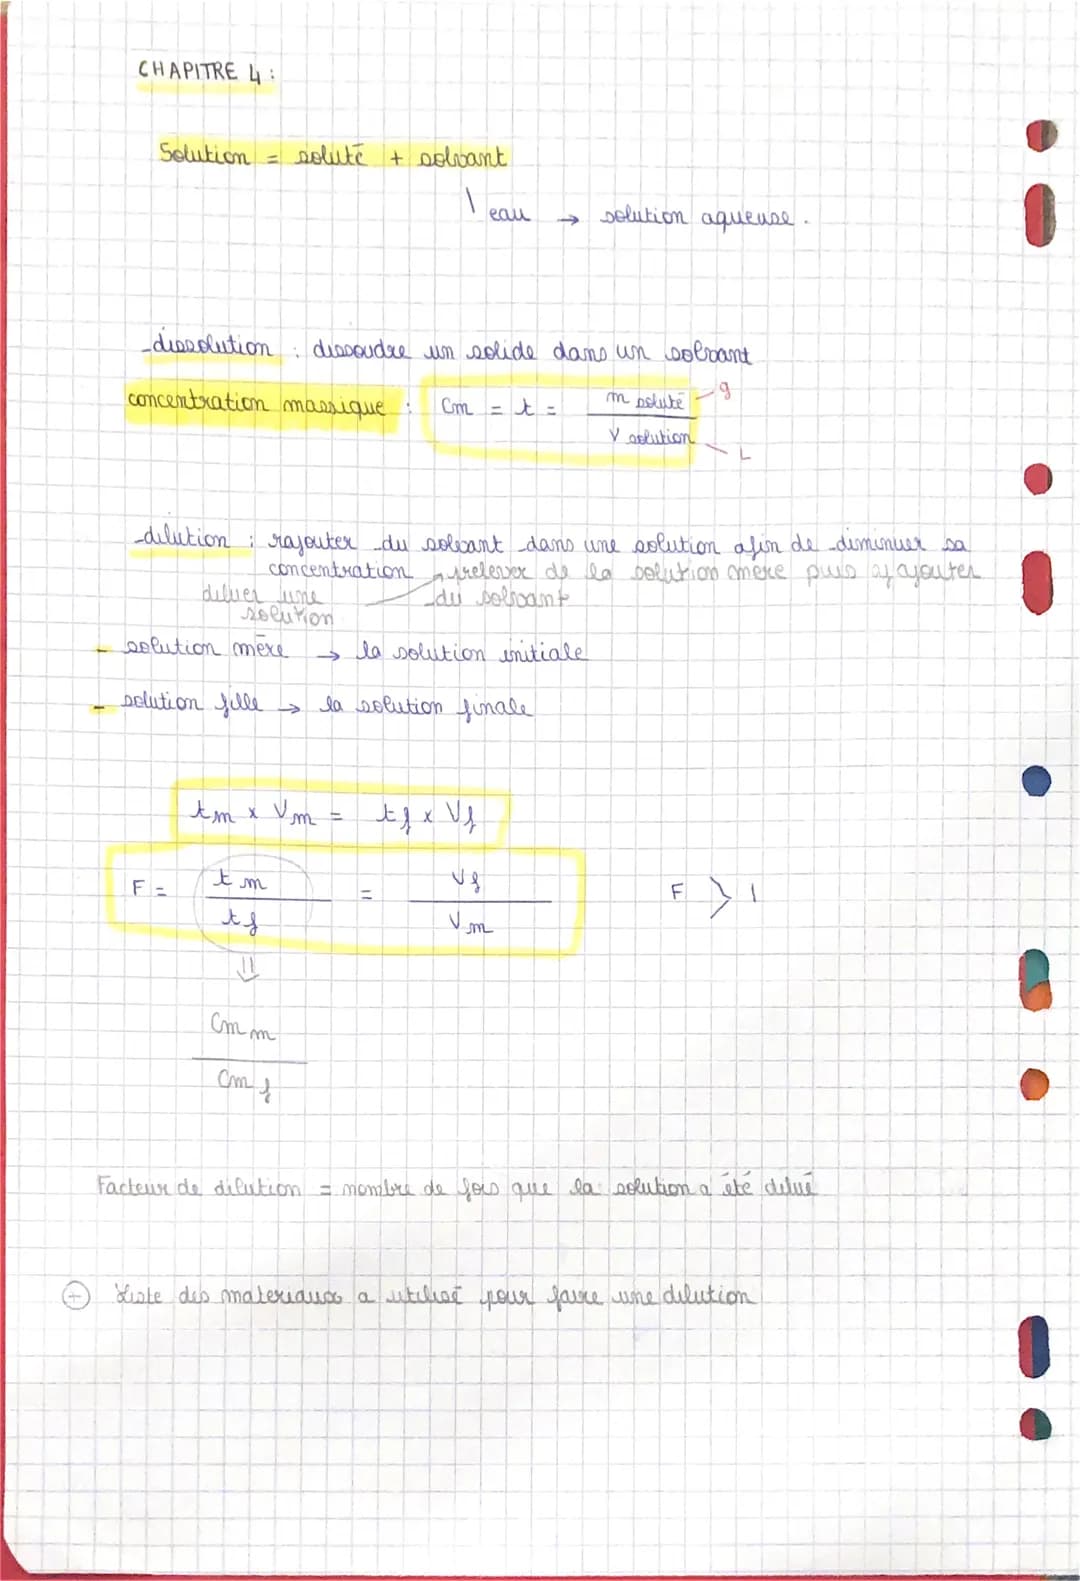 CHAPITRE 4 :
Solution = soluté + solvant
eau → solution aqueuse.
dissolution : dissoudre un solide dans un solvant
concentration massique : Cm = t = m soluté / V solution
g
L
dilution : rajouter du solvant dans une solution afin de diminuer sa
concentration
prelever de la solution mère puis y ajouter
du solvant
diluer une
solution
- solution mère → la solution initiale
- solution fille → la solution finale
tm x Vm = tf x Vf
F = tm / tf = Vf / Vm
F > 1
⇓
Cm m
Cm f
Facteur de dilution = nombre de fois que la solution a été dilué
+ Liste des materiaux a utilisé pour faire une dilution